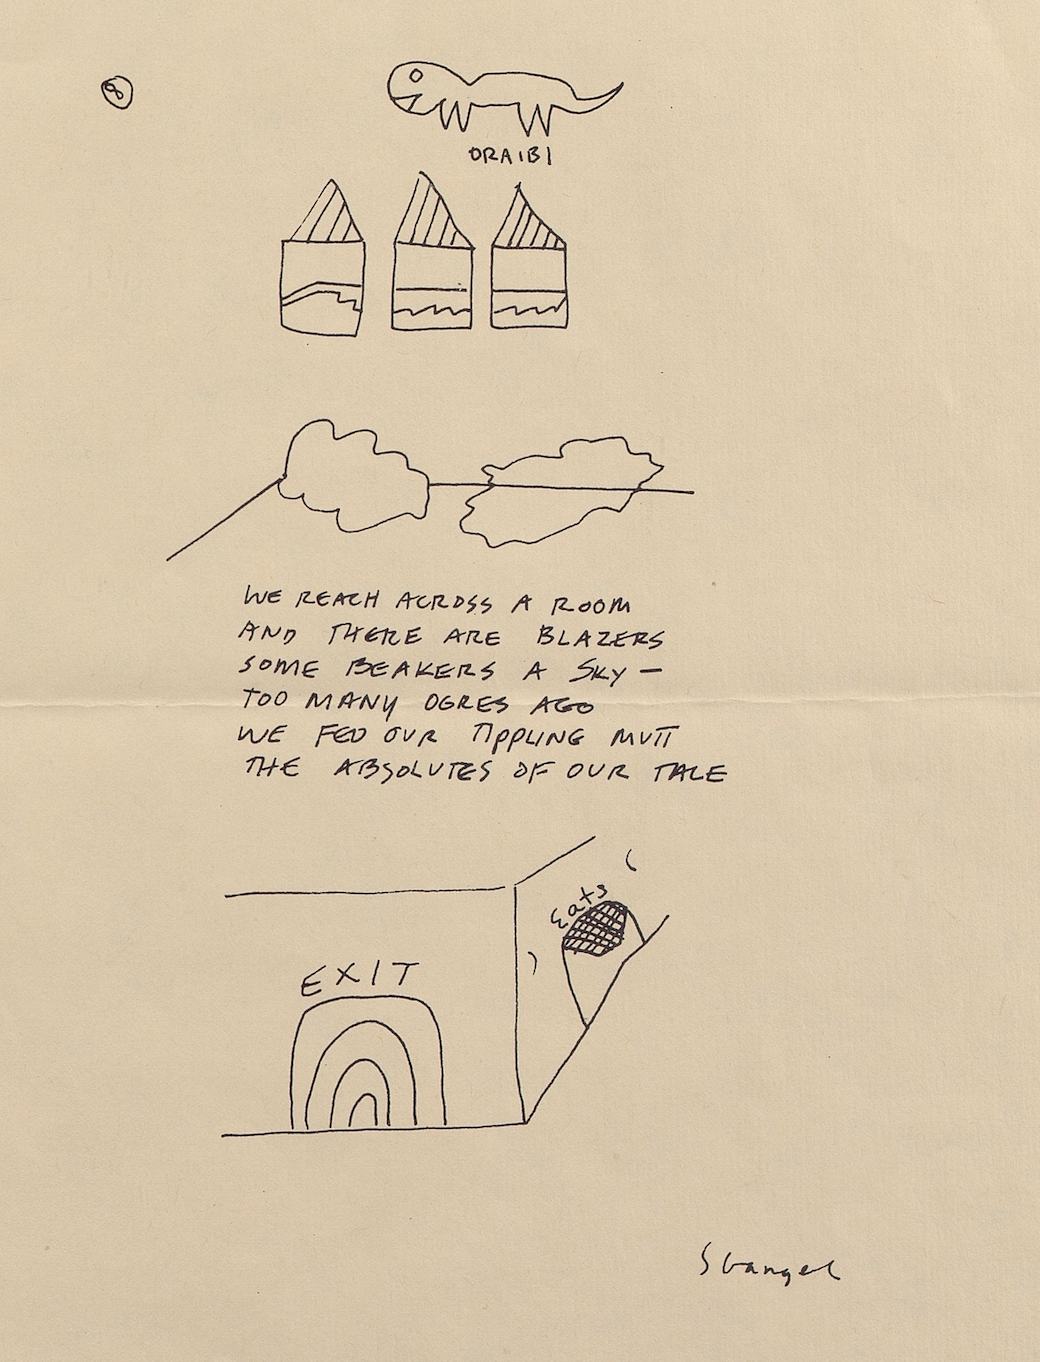 8
ORAIBI
WE REACH ACROSS A ROOM
AND THERE ARE BLAZERS
SOME BEAKERS A SKY —
TOO MANY OGRES AGO
WE FED OUR TIPPLING MUTT
THE ABSOLUTES OF OUR TALE
Eats
EXIT